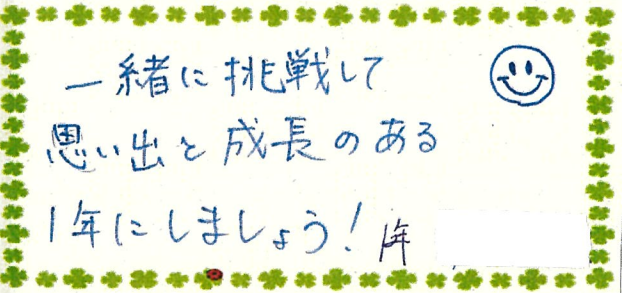 一緒に挑戦して
思い出と成長のある
1年にしましょう! 1年